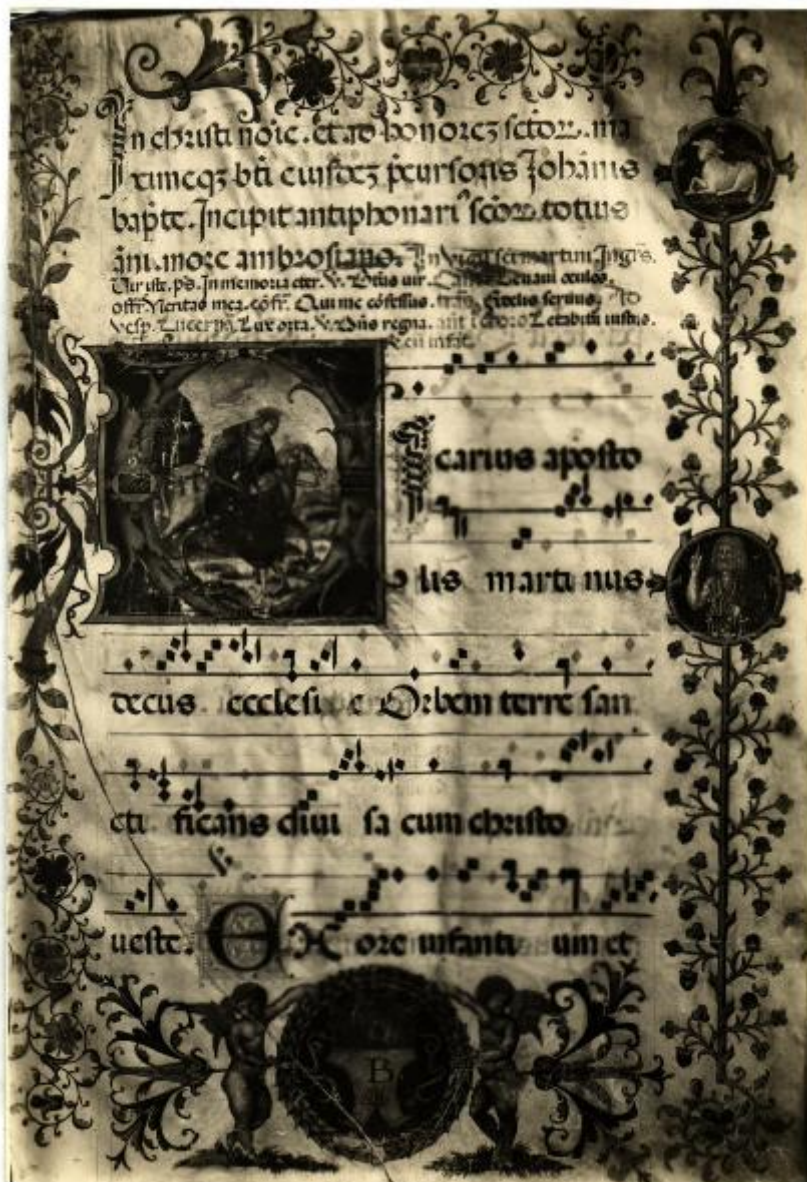 In christi noīe. et ad honoreȝ sctoꝝ. ma
ximeqȝ bti eiusdeȝ p̄cursoris Johānis
bapt̄e. Incipit antiphonari⁹ scōꝝ totius
āni. more ambrosiano. In vigil sci martini Ingrs̄.
Vir iste. ps. In memoria eter. V. Deus uir. Leuaui oculos.
offr̄. Veritas mea. cōfr̄. Qui me cōfessus. seruus. Ad
vesp. Lucern̄. Lux orta. V. Dn̄s regna. añ i choro Letabitur iustus.
icarius aposto
lis marti nus
decus ecclesi e Orbem terre san
cti ficans diui sa cum christo
ueste. Ex ore infanti um et
B